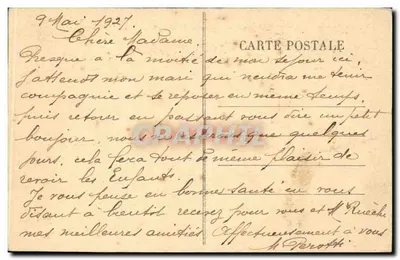 9 Mai 1927.
CARTE POSTALE
Chère Madame,
Presque à la moitié de mon séjour ici,
j'attends mon mari qui viendra me tenir
compagnie et se reposer en même temps,
puis retour en passant vous dire un petit
bonjour, nous que quelques
jours, cela fera tout de même plaisir de
revoir les Enfants.
Je vous pense en bonne santé en vous
disant à bientôt recevez pour vous et Mr
mes meilleures amitiés Affectueusement à vous
M Perotti